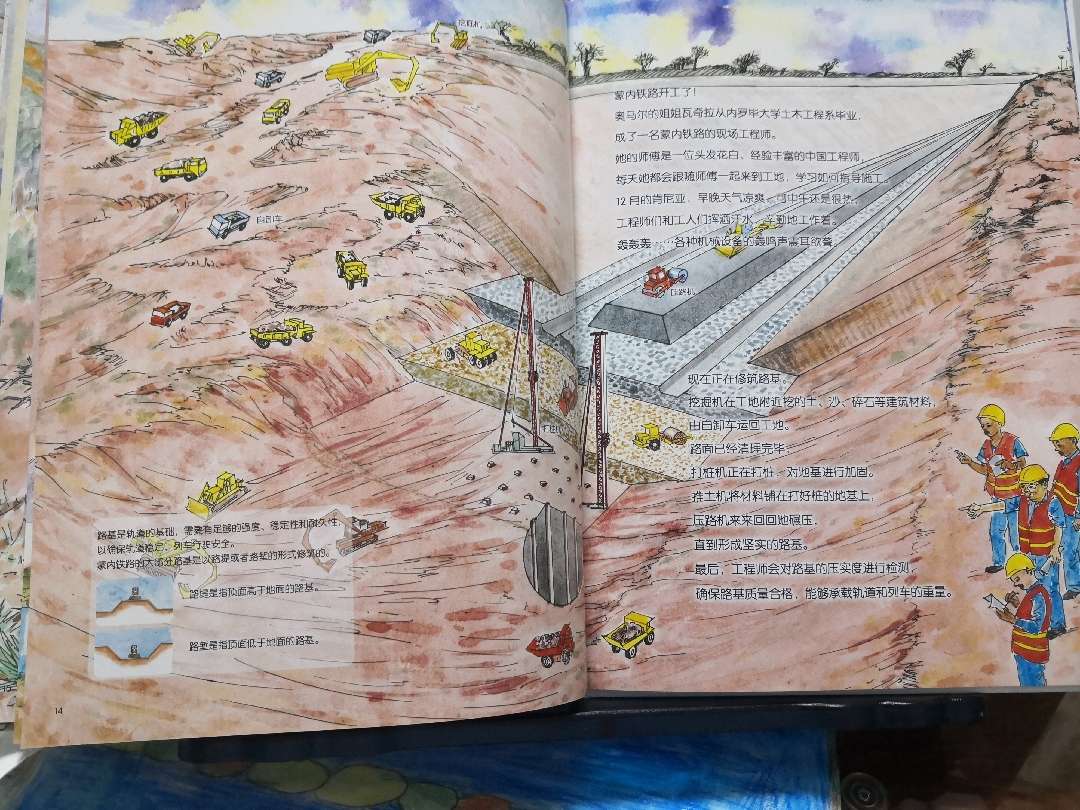 挖掘机
自卸车
路基是轨道的基础,需要有足够的强度、稳定性和耐久性,
以确保轨道稳定、列车行驶安全。
蒙内铁路的大部分路基是以路堤或者路堑的形式修筑的。
路堤是指顶面高于地面的路基。
路堑是指顶面低于地面的路基。
14
蒙内铁路开工了!
奥马尔的姐姐瓦奇拉从内罗毕大学土木工程系毕业,
成了一名蒙内铁路的现场工程师。
她的师傅是一位头发花白、经验丰富的中国工程师,
每天她都会跟随师傅一起来到工地,学习如何指导施工。
12月的肯尼亚,早晚天气凉爽,可中午还是很热。
工程师们和工人们挥洒汗水,辛勤地工作着。
轰轰轰……各种机械设备的轰鸣声震耳欲聋。
压路机
现在正在修筑路基。
挖掘机在工地附近挖的土、沙、碎石等建筑材料,
由自卸车运回工地。
路面已经清理完毕,
打桩机正在打桩,对地基进行加固。
推土机将材料铺在打好桩的地基上,
压路机来来回回地碾压,
直到形成坚实的路基。
最后,工程师会对路基的压实度进行检测,
确保路基质量合格,能够承载轨道和列车的重量。